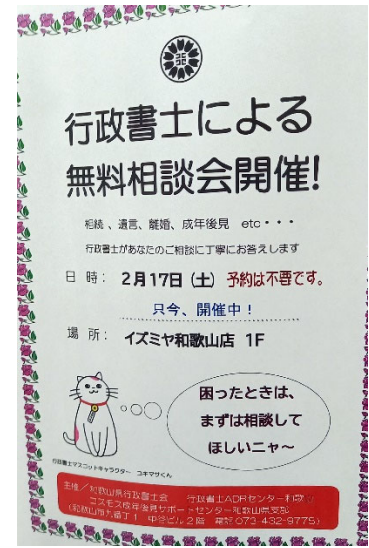 行政書士による
無料相談会開催!
相続、遺言、離婚、成年後見 etc・・・
行政書士があなたのご相談に丁寧にお答えします
日 時: 2月17日(土) 予約は不要です。
只今、開催中!
場 所: イズミヤ和歌山店 1F
困ったときは、
まずは相談して
ほしいニャ~
行政書士マスコットキャラクター ユキマサくん
主催/和歌山県行政書士会 行政書士ADRセンター和歌山
コスモス成年後見サポートセンター和歌山県支部
(和歌山市九番丁1 中谷ビル2階 電話073-432-9775)